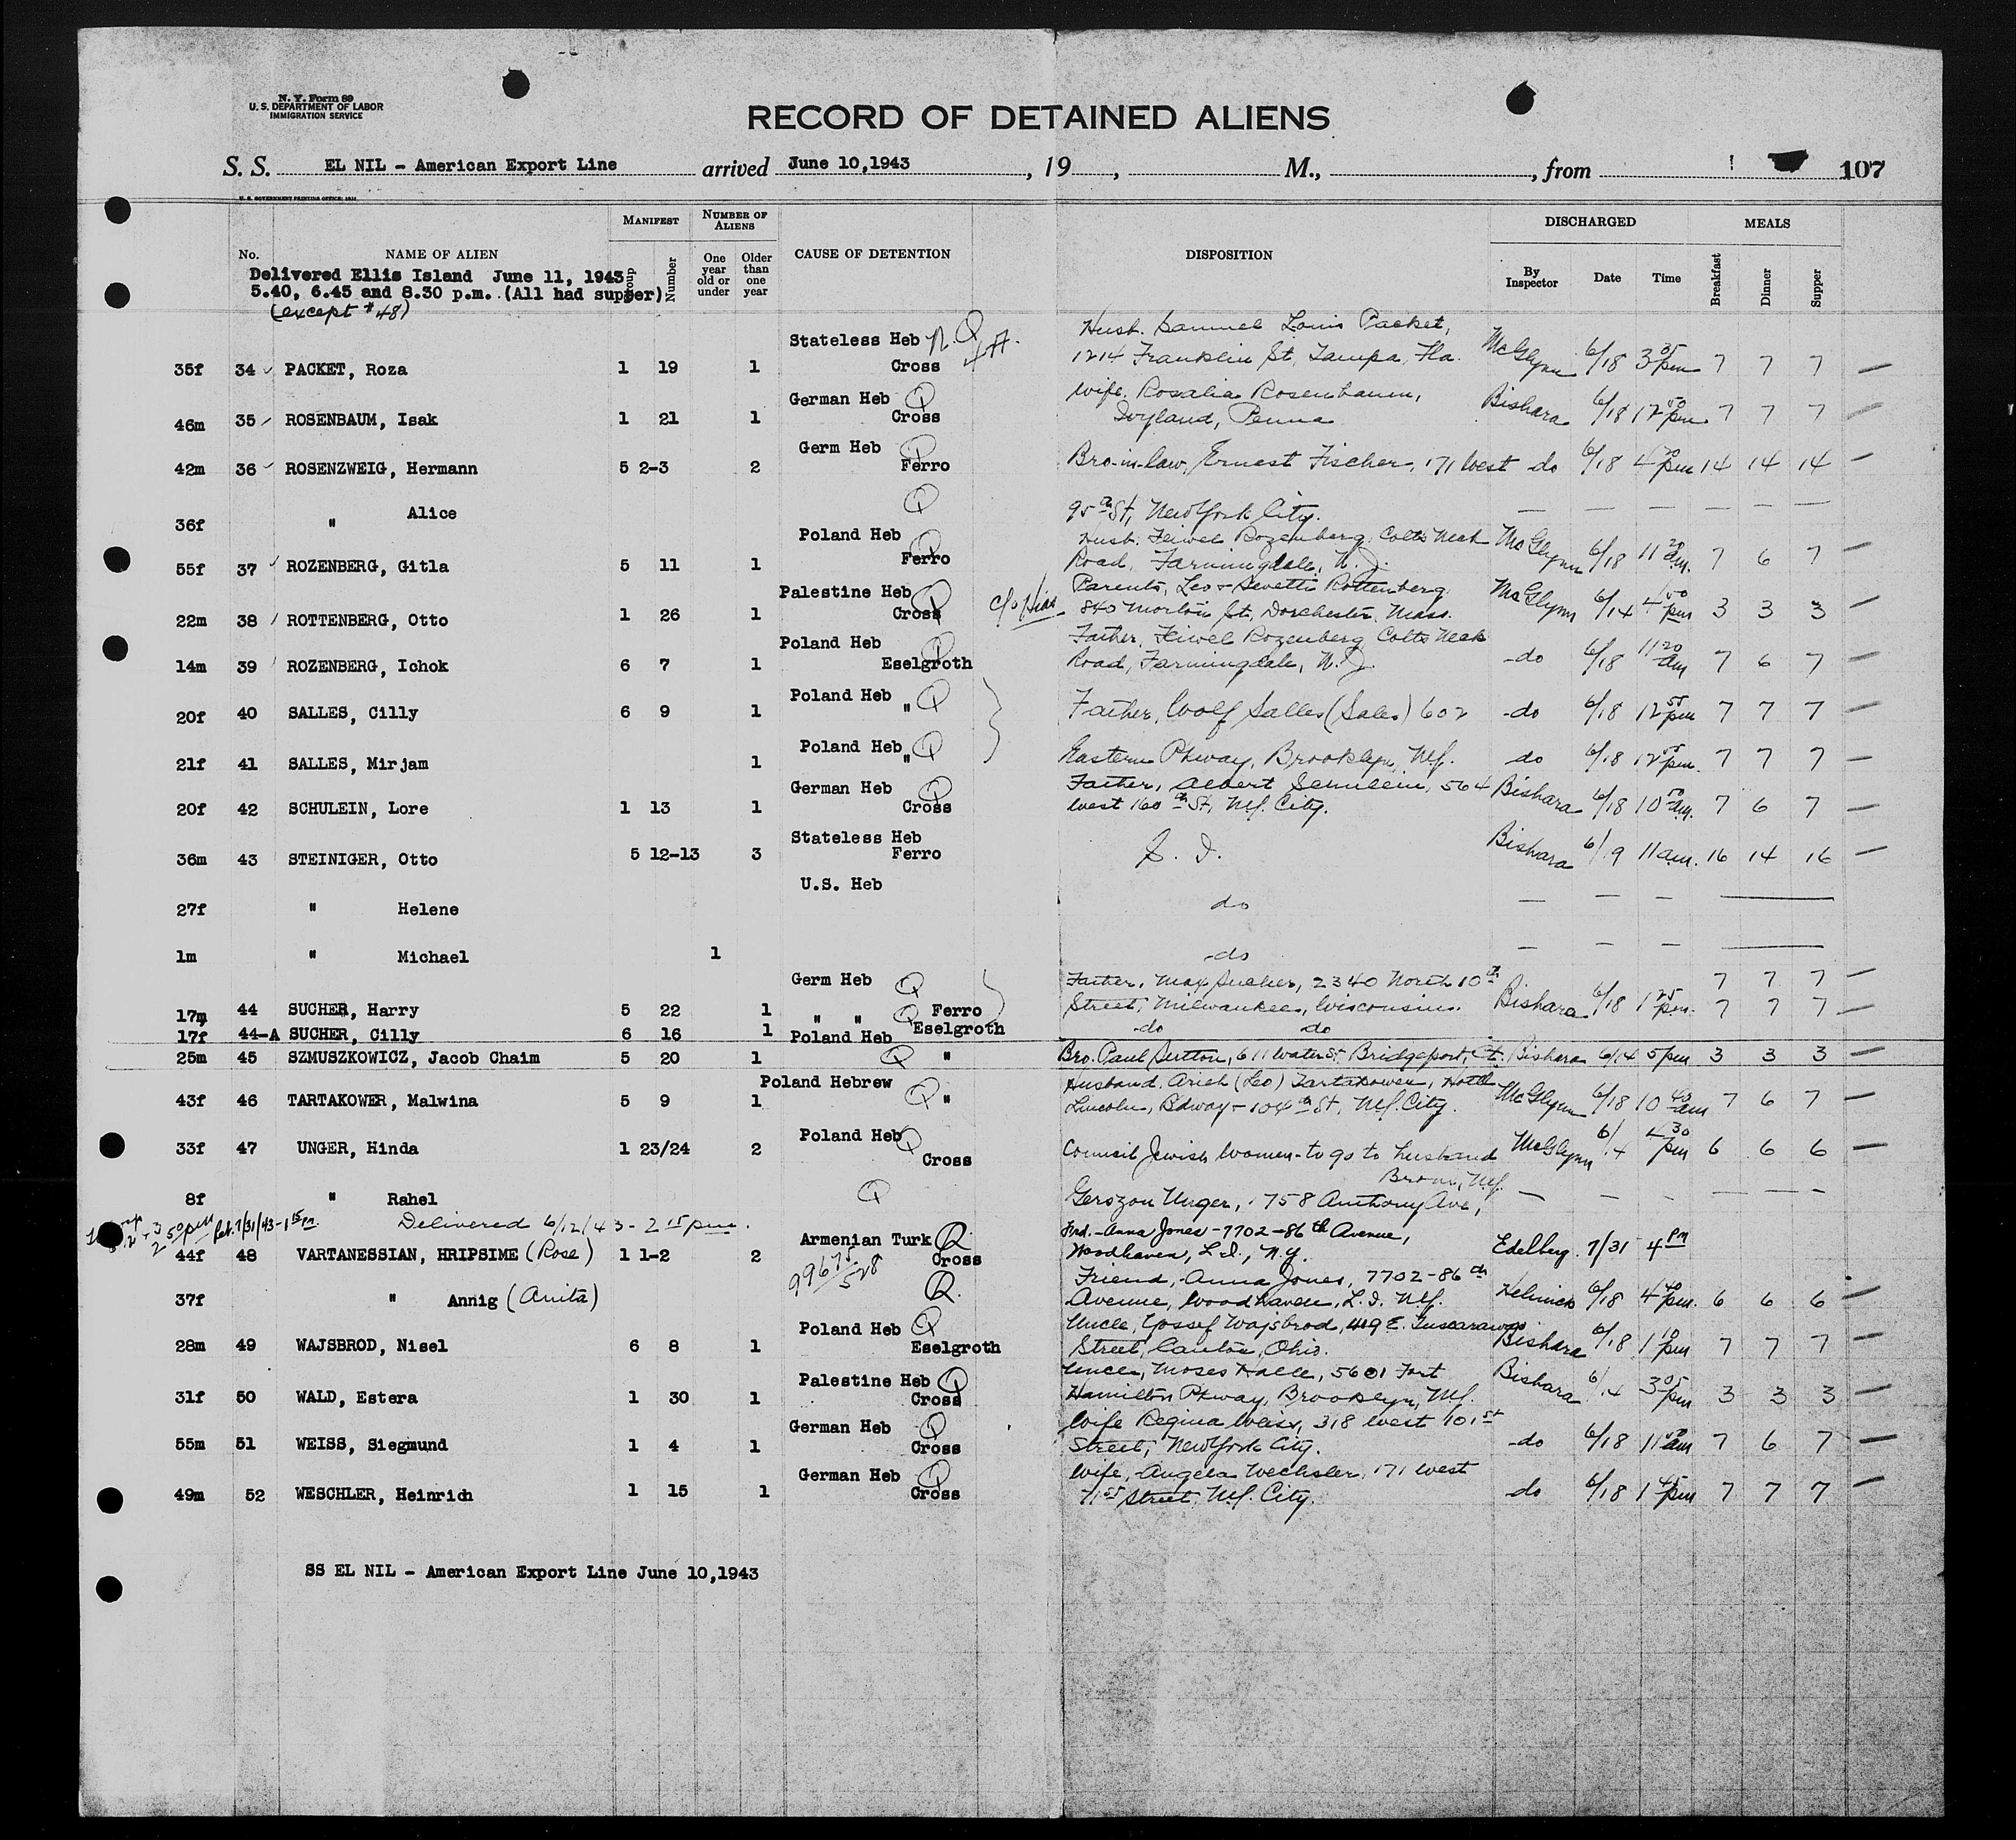 N. Y. Form 89
U. S. DEPARTMENT OF LABOR
IMMIGRATION SERVICE
RECORD OF DETAINED ALIENS
S. S. EL NIL - American Export Line arrived June 10,1943 , 19 , M., , from 107
U. S. GOVERNMENT PRINTING OFFICE:
No. NAME OF ALIEN MANIFEST Group Number NUMBER OF ALIENS One year old or under Older than one year CAUSE OF DETENTION DISPOSITION DISCHARGED By Inspector Date Time MEALS Breakfast Dinner Supper
Delivered Ellis Island June 11, 1943
5.40, 6.45 and 8.30 p.m. (All had supper)
(except #48)
Stateless Heb Q Husb. Samuel Louis Packet,
35f 34 PACKET, Roza 1 19 1 Cross 1214 Franklin St, Tampa, Fla. McGlynn 6/18 3 35 pm 7 7 7
German Heb Q Wife, Rosalia Rosenbaum,
46m 35 ROSENBAUM, Isak 1 21 1 Cross Ivyland, Penna Bishara 6/18 12 50 pm 7 7 7
Germ Heb Q
42m 36 ROSENZWEIG, Hermann 5 2-3 2 Ferro Bro-in-law, Ernest Fischer, 171 West do 6/18 4 20 pm 14 14 14
36f " Alice Q 95th St, New York City. — — — — — —
Poland Heb Q Husb. Feiwel Rozenberg, Colts Neck
55f 37 ROZENBERG, Gitla 5 11 1 Ferro Road, Farmingdale, N.J. McGlynn 6/18 11 20 am. 7 6 7
Palestine Heb Q c/o Hias Parents, Leo + Rottenberg
22m 38 ROTTENBERG, Otto 1 26 1 Cross 840 Morton St, Dorchester, Mass. McGlynn 6/14 4 50 pm 3 3 3
Poland Heb Q Father, Feiwel Rozenberg Colts Neck
14m 39 ROZENBERG, Ichok 6 7 1 Eselgroth Road, Farmingdale, N.J. -do 6/18 11 20 am 7 6 7
Poland Heb Q
20f 40 SALLES, Cilly 6 9 1 " Father, Wolf Salles (Sales) 602 -do 6/18 12 55 pm 7 7 7
Poland Heb Q
21f 41 SALLES, Mirjam 1 " Eastern Pkway, Brooklyn, N.Y. do 6/18 12 55 pm. 7 7 7
German Heb Q Father, Albert Schulein, 564
20f 42 SCHULEIN, Lore 1 13 1 Cross West 160th St, N.Y. City. Bishara 6/18 10 50 am. 7 6 7
Stateless Heb
36m 43 STEINIGER, Otto 5 12-13 3 Ferro S. I. Bishara 6/19 11 am. 16 14 16
U.S. Heb
27f " Helene do — — —
1m " Michael 1 -do — — —
Germ Heb Q Father, Max Sucher, 2340 North 10th 7 7 7
17m 44 SUCHER, Harry 5 22 1 Ferro Street, Milwaukee, Wisconsin. Bishara 6/18 1 25 pm. 7 7 7
" " Q
17f 44-A SUCHER, Cilly 6 16 1 Eselgroth -do do
Poland Heb
25m 45 SZMUSZKOWICZ, Jacob Chaim 5 20 1 Q " Bro. Paul Sutton, 611 Water St Bridgeport, Ct. Bishara 6/14 5 pm 3 3 3
Poland Hebrew Q Husband, Arieh (Leo) Tartakower, Hotel
43f 46 TARTAKOWER, Malwina 5 9 1 " Lincoln, Bdway - 104th St, N.Y. City. McGlynn 6/18 10 40 am 7 6 7
Poland Heb Q
33f 47 UNGER, Hinda 1 23/24 2 Cross Council Jewish Women - to go to husband McGlynn 6/14 4 30 pm 6 6 6
Bronx, N.Y.
8f " Rahel Q Gerszon Unger, 1758 Anthony Ave, — — — — — —
ret. 7/31/43 - 1 15 pm. Delivered 6/12/43 - 2 15 pm.
Armenian Turk Q Frd. - Anna Jones - 7702 - 86th Avenue,
44f 48 VARTANESSIAN, HRIPSIME (Rose) 1 1-2 2 Cross Woodhaven, L.I., N.Y. Edelberg. 7/31 4 PM
99675/528
Friend, Anna Jones, 7702-86th
37f " Annig (Anita) Q. Avenue, Woodhaven, L.I. N.Y. 6/18 4 40 pm. 6 6 6
Poland Heb Q Uncle, Yossef Wajsbrod, 1119 E. Tuscarawas
28m 49 WAJSBROD, Nisel 6 8 1 Eselgroth Street, Canton, Ohio. Bishara 6/18 1 10 pm 7 7 7
Palestine Heb Q Uncle, Moses Halle, 5601 Fort
31f 50 WALD, Estera 1 30 1 Cross Hamilton Pkway, Brooklyn, N.Y. Bishara 6/14 3 05 pm 3 3 3
German Heb Q Wife Regina Weiss, 318 West 101st
55m 51 WEISS, Siegmund 1 4 1 Cross Street, New York City. -do 6/18 11 am 7 6 7
German Heb Q Wife, Angela Wechsler, 171 West
49m 52 WESCHLER, Heinrich 1 15 1 Cross 71st Street, N.Y. City. do 6/18 1 45 pm 7 7 7
SS EL NIL - American Export Line June 10,1943